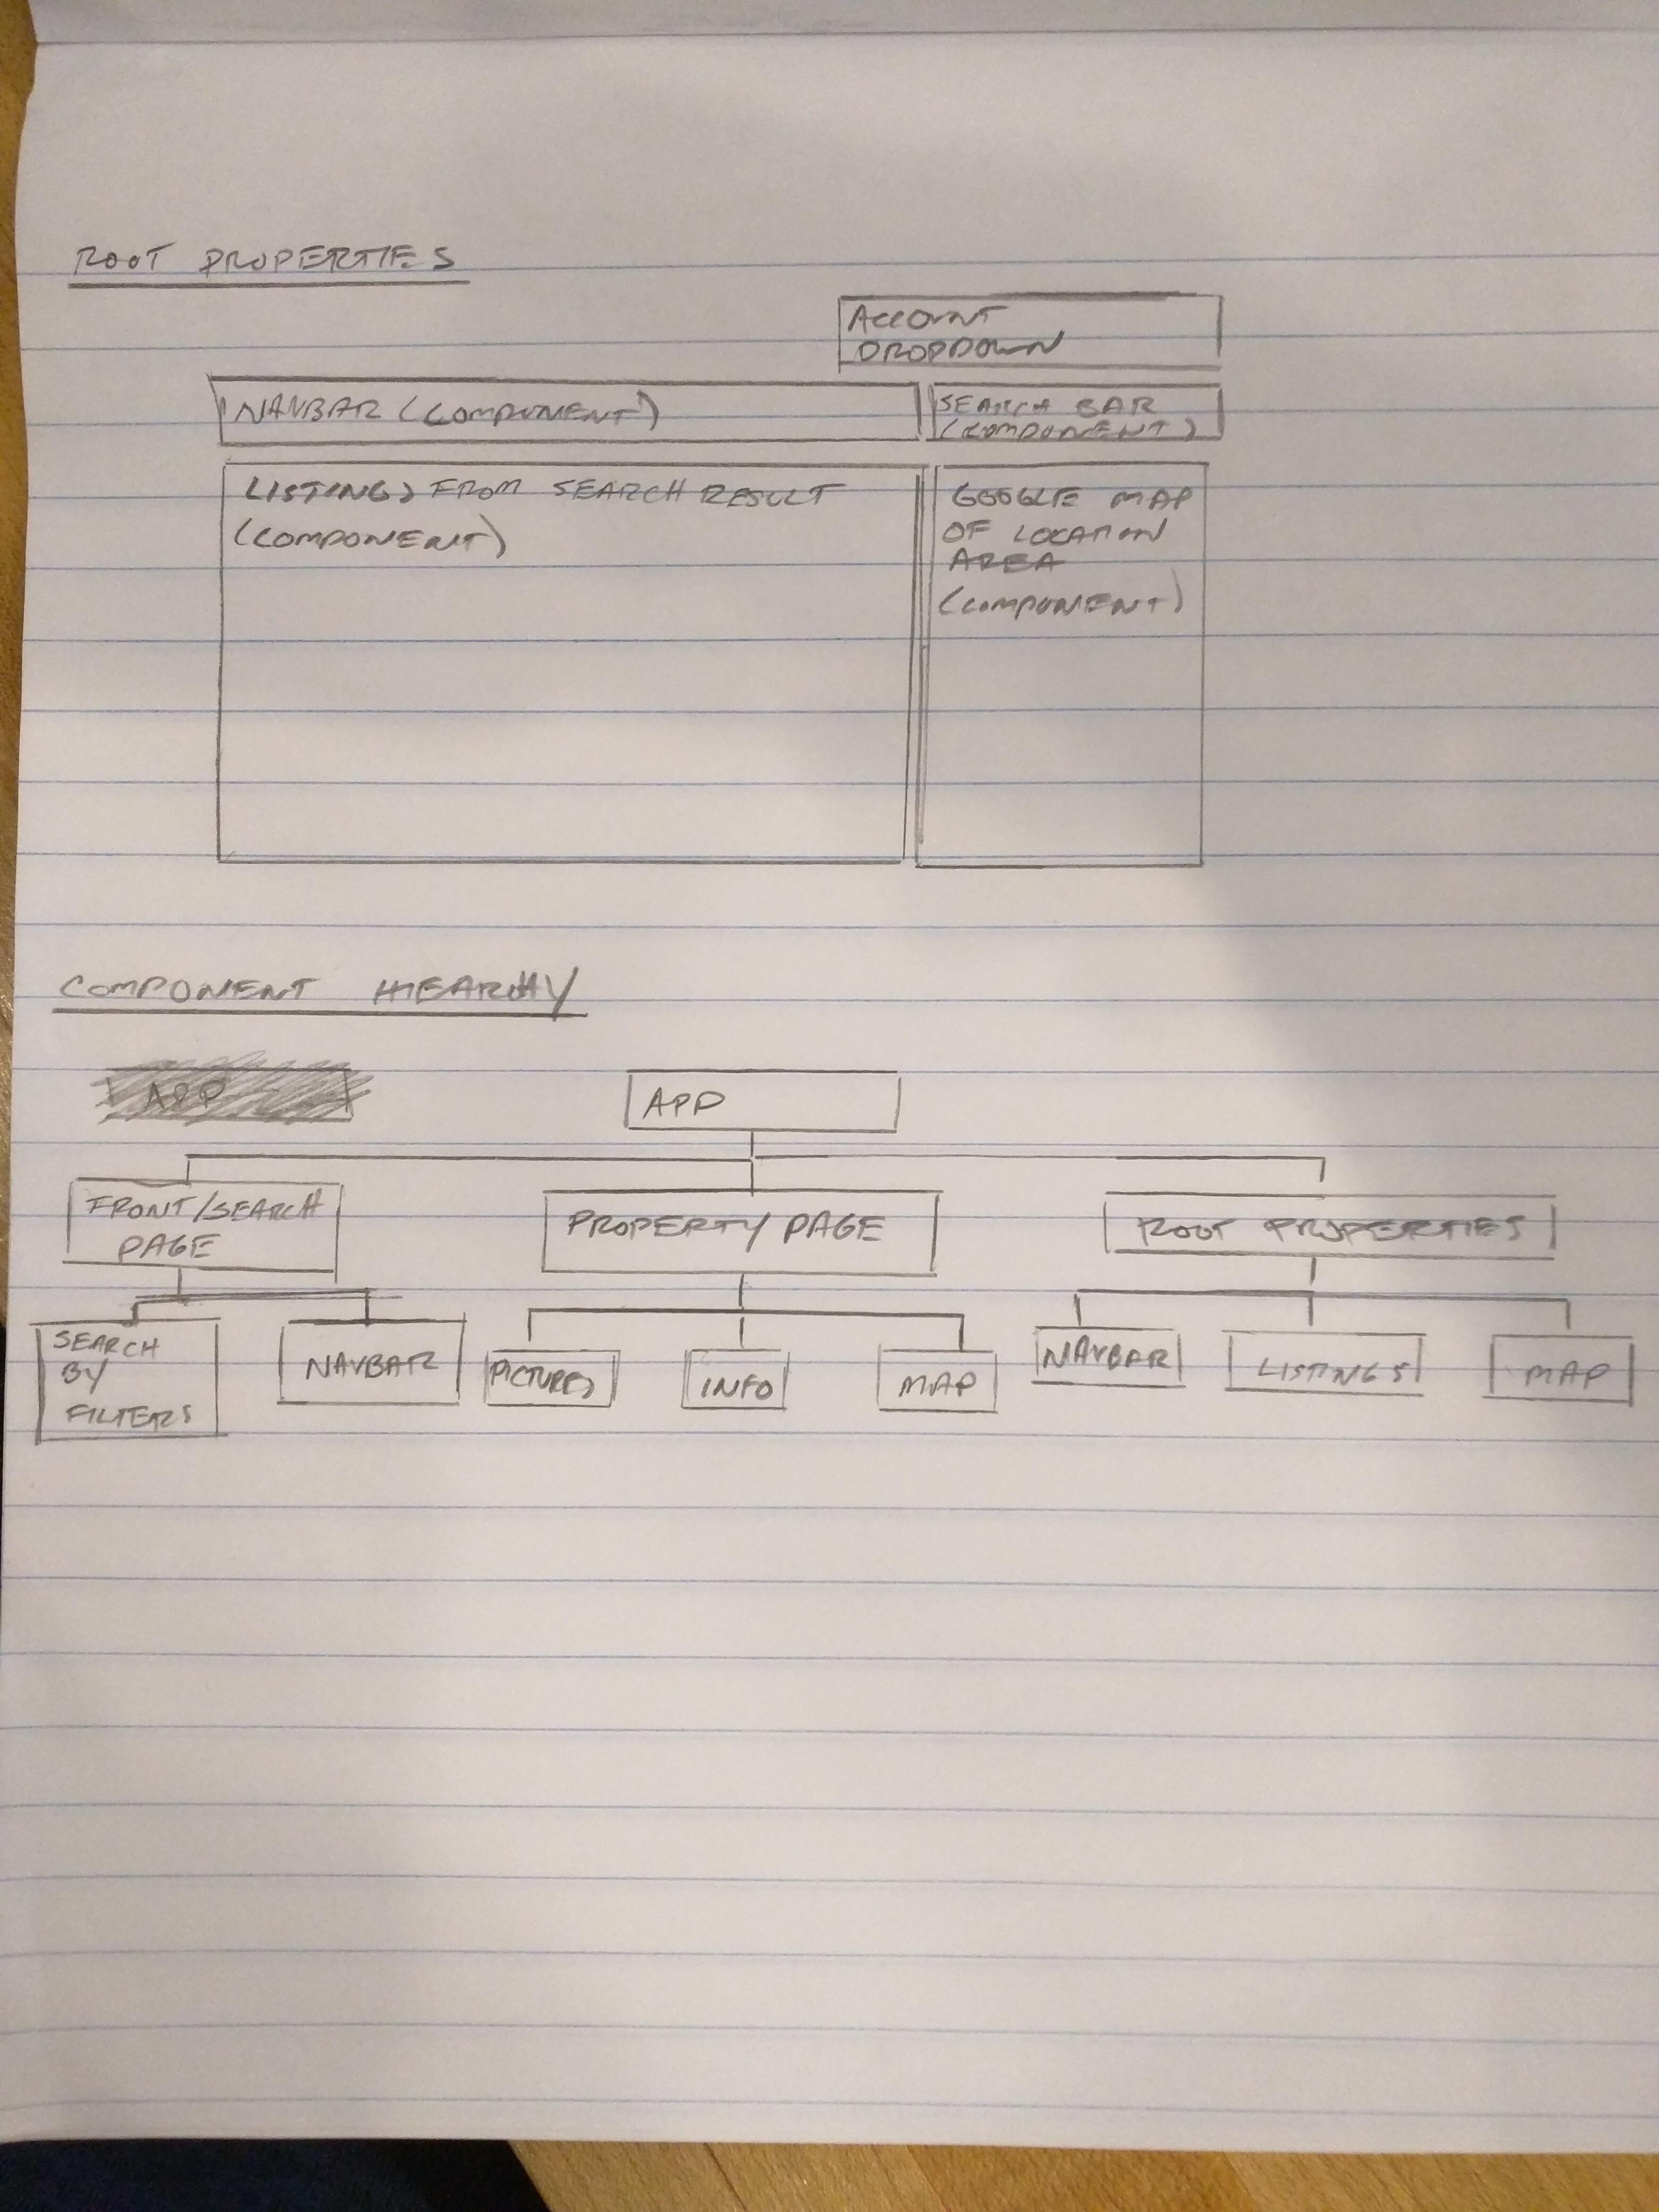 ROOT PROPERTIES
ACCOUNT
DROPDOWN
NAVBAR (COMPONENT)
SEARCH BAR
(COMPONENT)
LISTINGS FROM SEARCH RESULT
(COMPONENT)
GOOGLE MAP
OF LOCATION
AREA
(COMPONENT)
COMPONENT HIEARCHY
APP
APP
FRONT/SEARCH
PAGE
PROPERTY PAGE
ROOT PROPERTIES
SEARCH
BY
FILTERS
NAVBAR
PICTURES
INFO
MAP
NAVBAR
LISTINGS
MAP